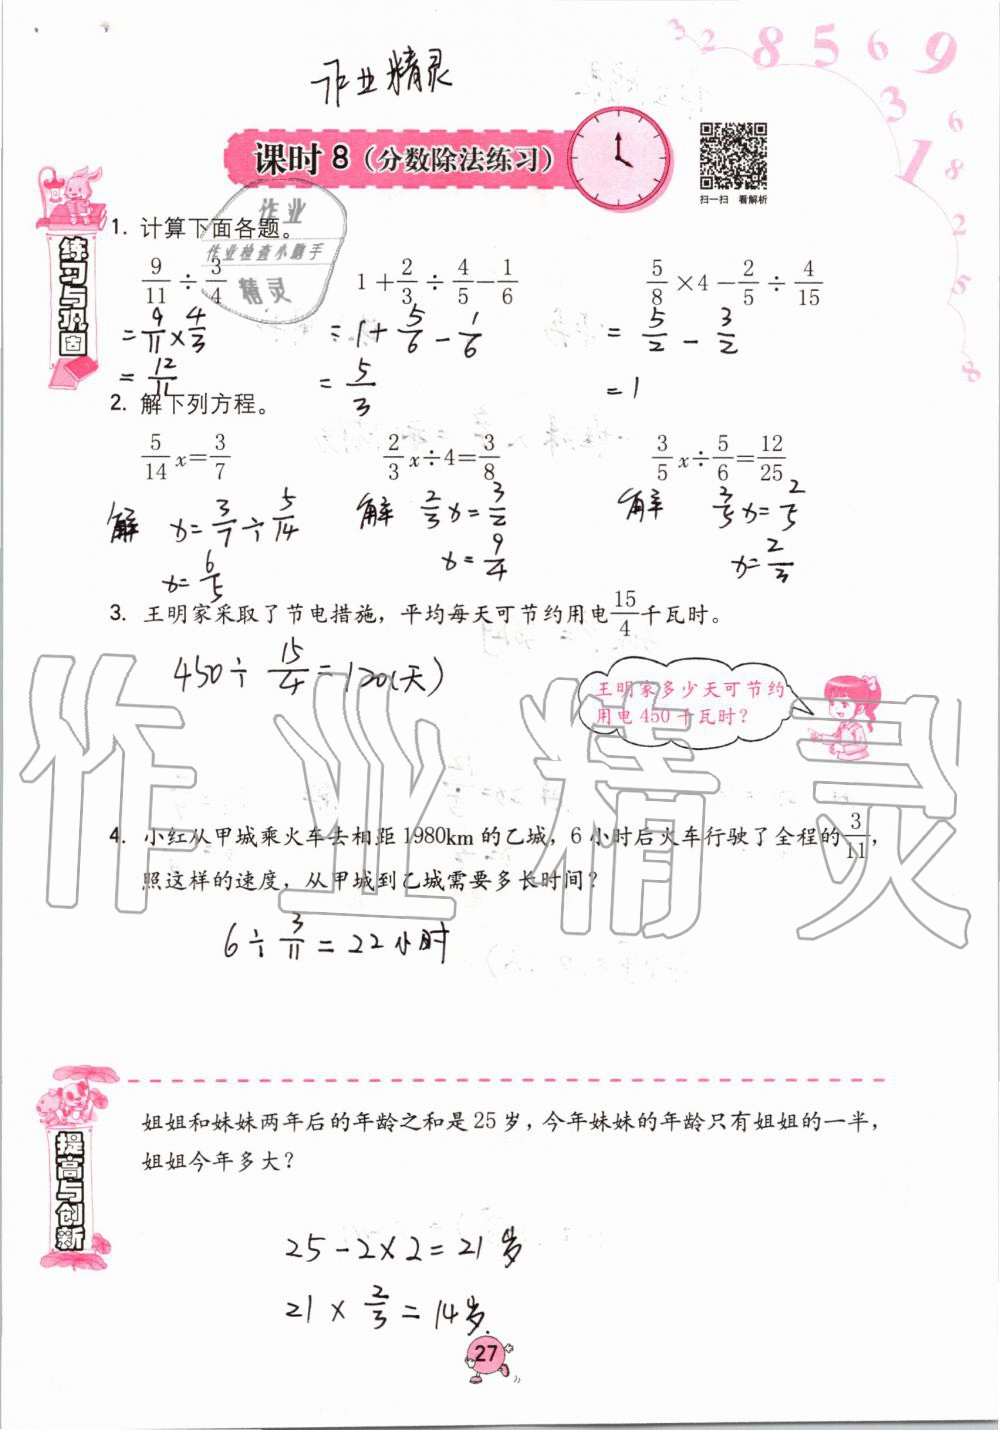 3 2 8 5 6 9 3 1 6 8 2 5 8
作业精灵
课时8（分数除法练习）
扫一扫 看解析
作业
作业检查小助手
精灵
练习与巩固
1. 计算下面各题。
9/11÷3/4 1+2/3÷4/5-1/6 5/8×4-2/5÷4/15
=9/11×4/3 =1+5/6-1/6 =5/2-3/2
=12/11 =5/3 =1
2. 解下列方程。
5/14x=3/7 2/3x÷4=3/8 3/5x÷5/6=12/25
解 x=3/7÷5/14 解 2/3x=3/2 解 3/5x=2/5
x=6/5 x=9/4 x=2/3
3. 王明家采取了节电措施，平均每天可节约用电15/4千瓦时。
450÷15/4=120(天)
王明家多少天可节约
用电450千瓦时？
作业精灵
4. 小红从甲城乘火车去相距1980km的乙城，6小时后火车行驶了全程的3/11，
照这样的速度，从甲城到乙城需要多长时间？
6÷3/11=22小时
提高与创新
姐姐和妹妹两年后的年龄之和是25岁，今年妹妹的年龄只有姐姐的一半，
姐姐今年多大？
25-2×2=21岁
21×2/3=14岁.
27